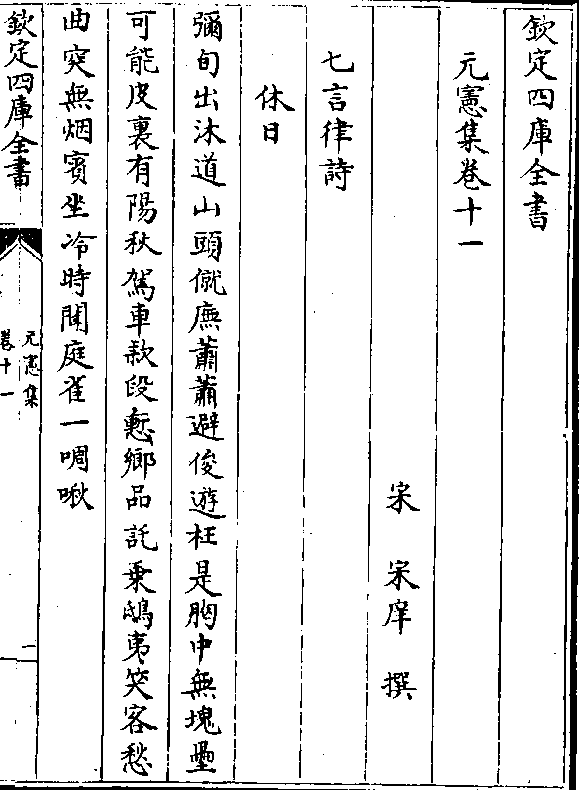 欽定四庫全書
元憲集卷十一
宋 宋庠 撰
七言律詩
休日
彌旬出沐道山頭僦廡蕭蕭避俊遊枉是胸中無塊壘
可能皮裏有陽秋駕車款段慙鄉品託乗鴟夷笑客愁
曲突無烟賓坐冷時聞庭雀一啁啾
欽定四庫全書
元憲集
卷十一
一